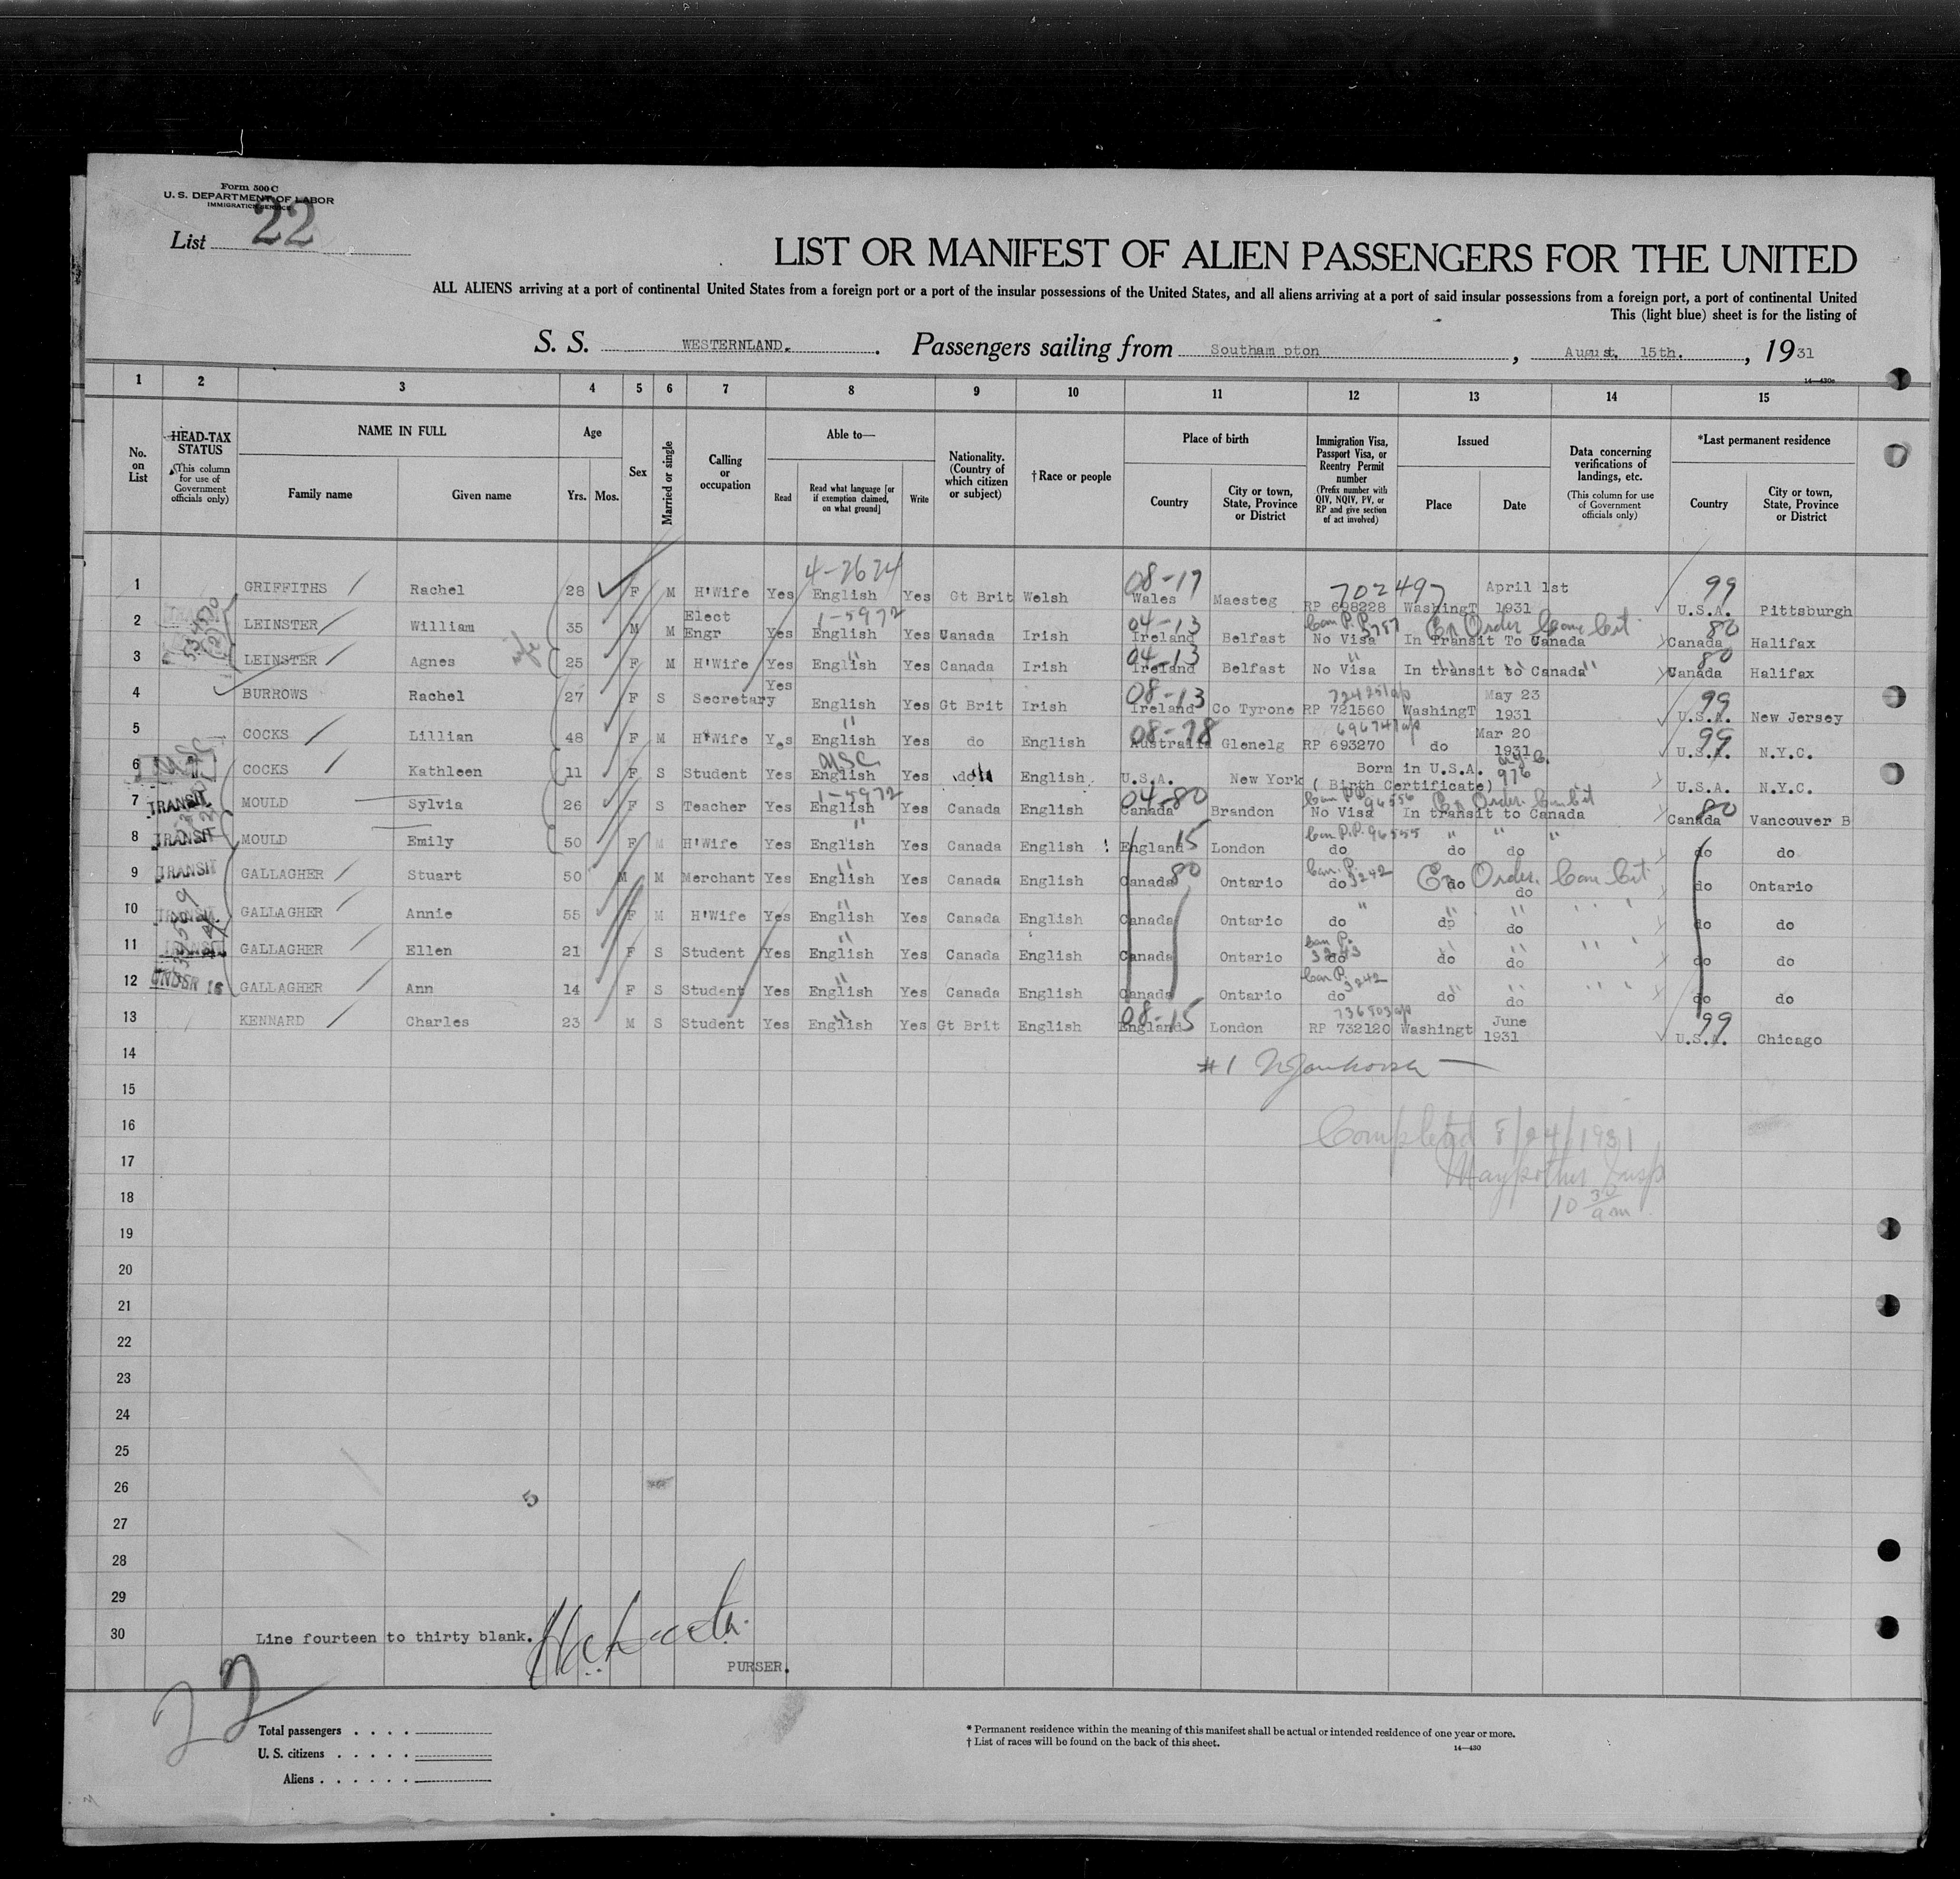 Form 500 C
U. S. DEPARTMENT OF LABOR
IMMIGRATION SERVICE
List 22
LIST OR MANIFEST OF ALIEN PASSENGERS FOR THE UNITED
ALL ALIENS arriving at a port of continental United States from a foreign port or a port of the insular possessions of the United States, and all aliens arriving at a port of said insular possessions from a foreign port, a port of continental United
This (light blue) sheet is for the listing of
S. S. WESTERNLAND. Passengers sailing from Southam pton, August. 15th., 1931
14—430c
1 2 3 4 5 6 7 8 9 10 11 12 13 14 15
No. on List
HEAD-TAX STATUS (This column for use of Government officials only)
NAME IN FULL Family name Given name
Age Yrs. Mos.
Sex
Married or single
Calling or occupation
Able to— Read Read what language [or if exemption claimed, on what ground] Write
Nationality. (Country of which citizen or subject)
† Race or people
Place of birth Country City or town, State, Province or District
Immigration Visa, Passport Visa, or Reentry Permit number (Prefix number with QIV, NQIV, PV, or RP and give section of act involved)
Issued Place Date
Data concerning verifications of landings, etc. (This column for use of Government officials only)
*Last permanent residence Country City or town, State, Province or District
4-2624 08-17 702497 April 1st 99
1 GRIFFITHS Rachel 28 F M H'Wife Yes English Yes Gt Brit Welsh Wales Maesteg RP 698228 WashingT 1931 U.S.A. Pittsburgh
Elect 1-5972 04-13 Can P.P. 3757 80
2 LEINSTER William 35 M M Engr Yes English Yes Canada Irish Ireland Belfast No Visa In Transit To Canada Canada Halifax
wife 04-13 80
3 LEINSTER Agnes 25 F M H'Wife Yes English Yes Canada Irish Ireland Belfast No Visa In transit to Canada Canada Halifax
Yes 08-13 May 23 99
4 BURROWS Rachel 27 F S Secretary English Yes Gt Brit Irish Ireland Co Tyrone RP 721560 WashingT 1931 U.S.A. New Jersey
08-78 Mar 20 99
5 COCKS Lillian 48 F M H'Wife Yes English Yes do English Australia Glenelg RP 693270 do 1931 U.S.A. N.Y.C.
USC Born in U.S.A. 976
6 COCKS Kathleen 11 F S Student Yes English Yes do English U.S.A. New York ( Birth Certificate) U.S.A. N.Y.C.
1-5972 04-80 Can P.P. 96556 80
7 TRANSIT MOULD Sylvia 26 F S Teacher Yes English Yes Canada English Canada Brandon No Visa In transit to Canada Canada Vancouver B
15 Can P.P. 96555
8 TRANSIT MOULD Emily 50 F M H'Wife Yes English Yes Canada English England London do do do do do
80 Can. P. 3242 Order. Can Cit
9 TRANSIT GALLAGHER Stuart 50 M M Merchant Yes English Yes Canada English Canada Ontario do do do do Ontario
10 TRANSIT GALLAGHER Annie 55 F M H'Wife Yes English Yes Canada English Canada Ontario do do do do do
Can P. 3243
11 TRANSIT GALLAGHER Ellen 21 F S Student Yes English Yes Canada English Canada Ontario do do do do do
Can P. 3242
12 UNDER 16 GALLAGHER Ann 14 F S Student Yes English Yes Canada English Canada Ontario do do do do do
08-15 June 99
13 KENNARD Charles 23 M S Student Yes English Yes Gt Brit English England London RP 732120 Washingt 1931 U.S.A. Chicago
14 #1
15
16 Completed 8/24/1931
17 Insp
18 10 30 am
19
20
21
22
23
24
25
26
5
27
28
29
30 Line fourteen to thirty blank.
PURSER.
22
Total passengers . . . .
U. S. citizens . . . . .
Aliens . . . . . .
* Permanent residence within the meaning of this manifest shall be actual or intended residence of one year or more.
† List of races will be found on the back of this sheet.
14—430